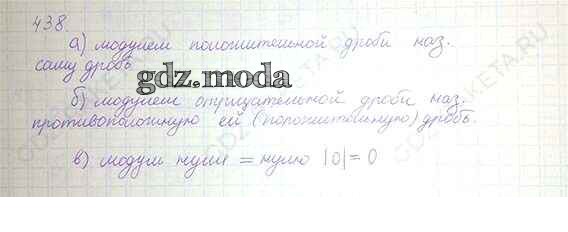 438.
а) модулем положительной дроби наз.
саму дробь
gdz.moda
б) модулем отрицательной дроби наз.
противоположную ей (положительную) дробь.
в) модул нуля = нулю |0| = 0